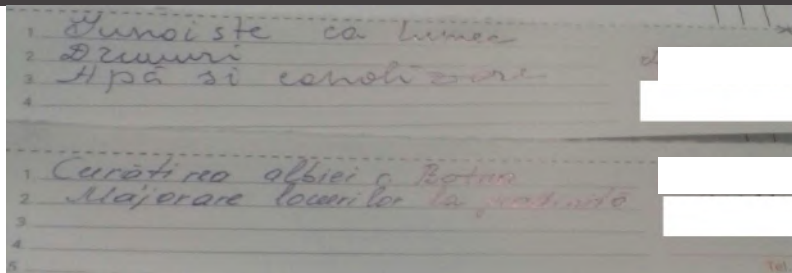 1 Gunoiste ca lumea
2 Drumuri
3 Apă si canalizare
4
1 Curătirea albiei r. Botna
2 Majorare locurilor la gradinită
3
4
5
Tel